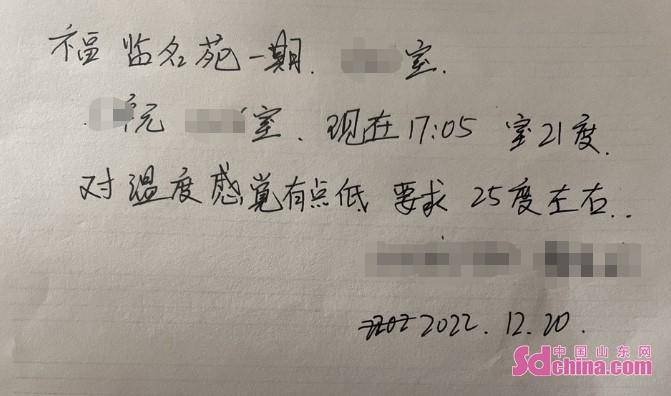 福监名苑一期. 室.
室. 现在17:05 室21度.
对温度感觉有点低 要求 25度左右..
2022.12.20.
中国山东网
Sdchina.com